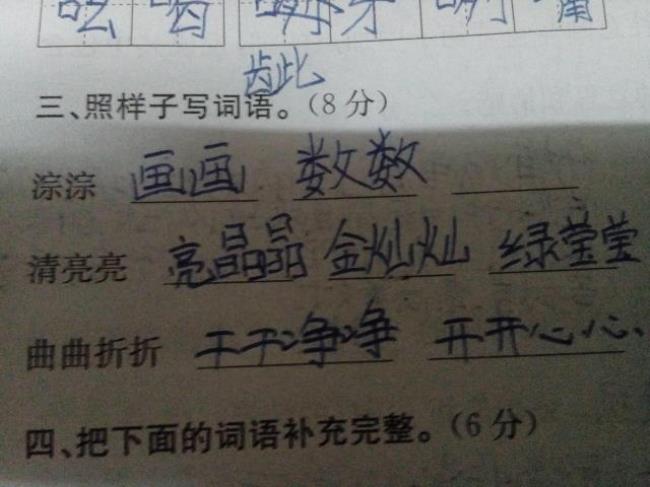 齿此
三、照样子写词语。(8分)
淙淙 画画 数数
清亮亮 亮晶晶 金灿灿 绿莹莹
曲曲折折 干干净净 开开心心
四、把下面的词语补充完整。(6分)